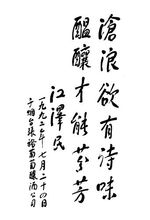 滄浪欲有诗味
醞釀才能芬芳
江澤民
一九九二年七月二十四日
于烟台张裕葡萄酿酒公司